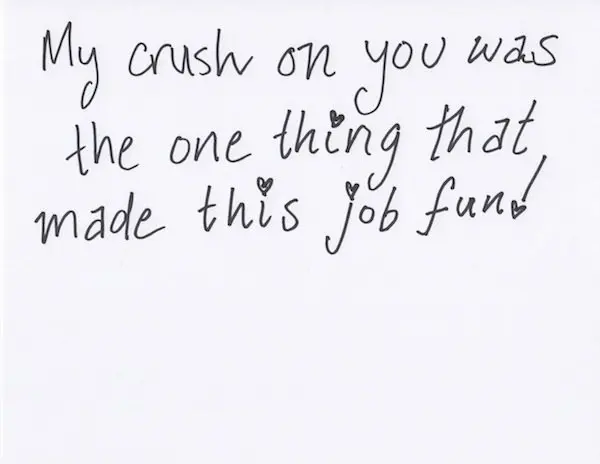 My crush on you was
the one thing that
made this job fun!